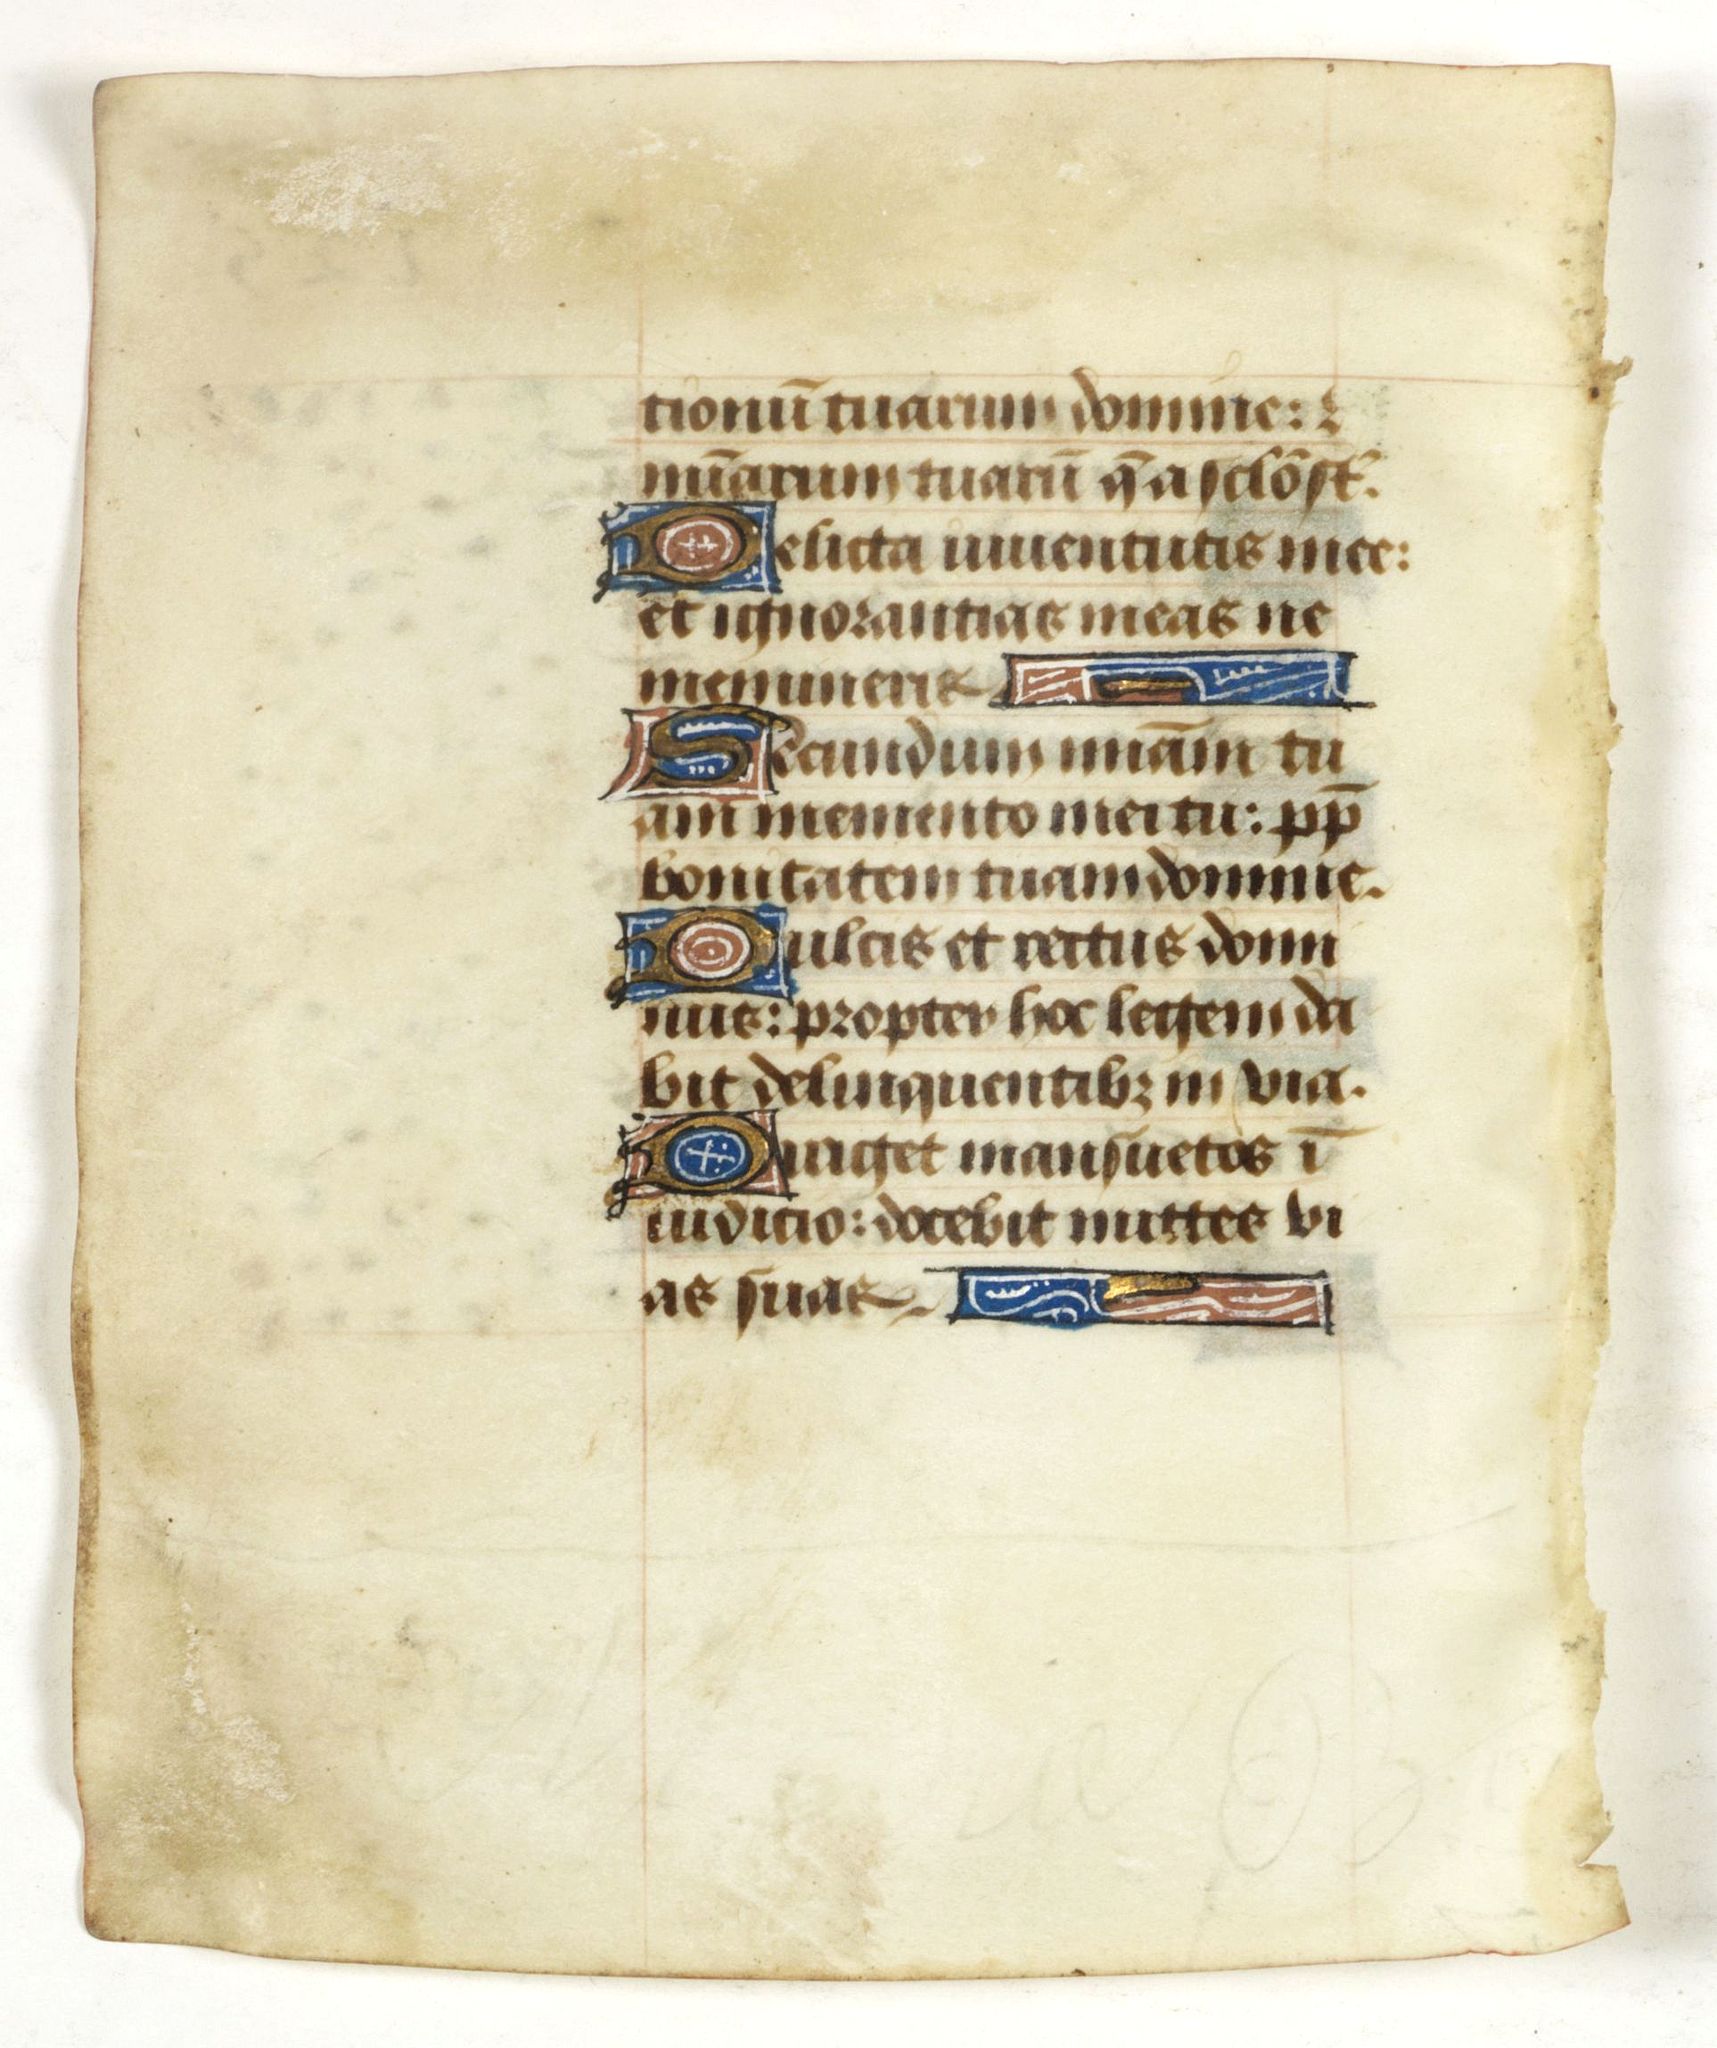 tionū tuarum domine: ⁊
mīarum tuarū q̄ a sclō st̄.
Delicta iuuentutis mee:
et ignorantias meas ne
memineris
Secundum miām tu
am memento mei tu: pp̄
bonitatem tuam domine.
Dulcis et rectus domi
nus: propter hoc legem da
bit delinquentibꝫ in via.
Diriget mansuetos ī
iudicio: docebit mittes vi
as suas